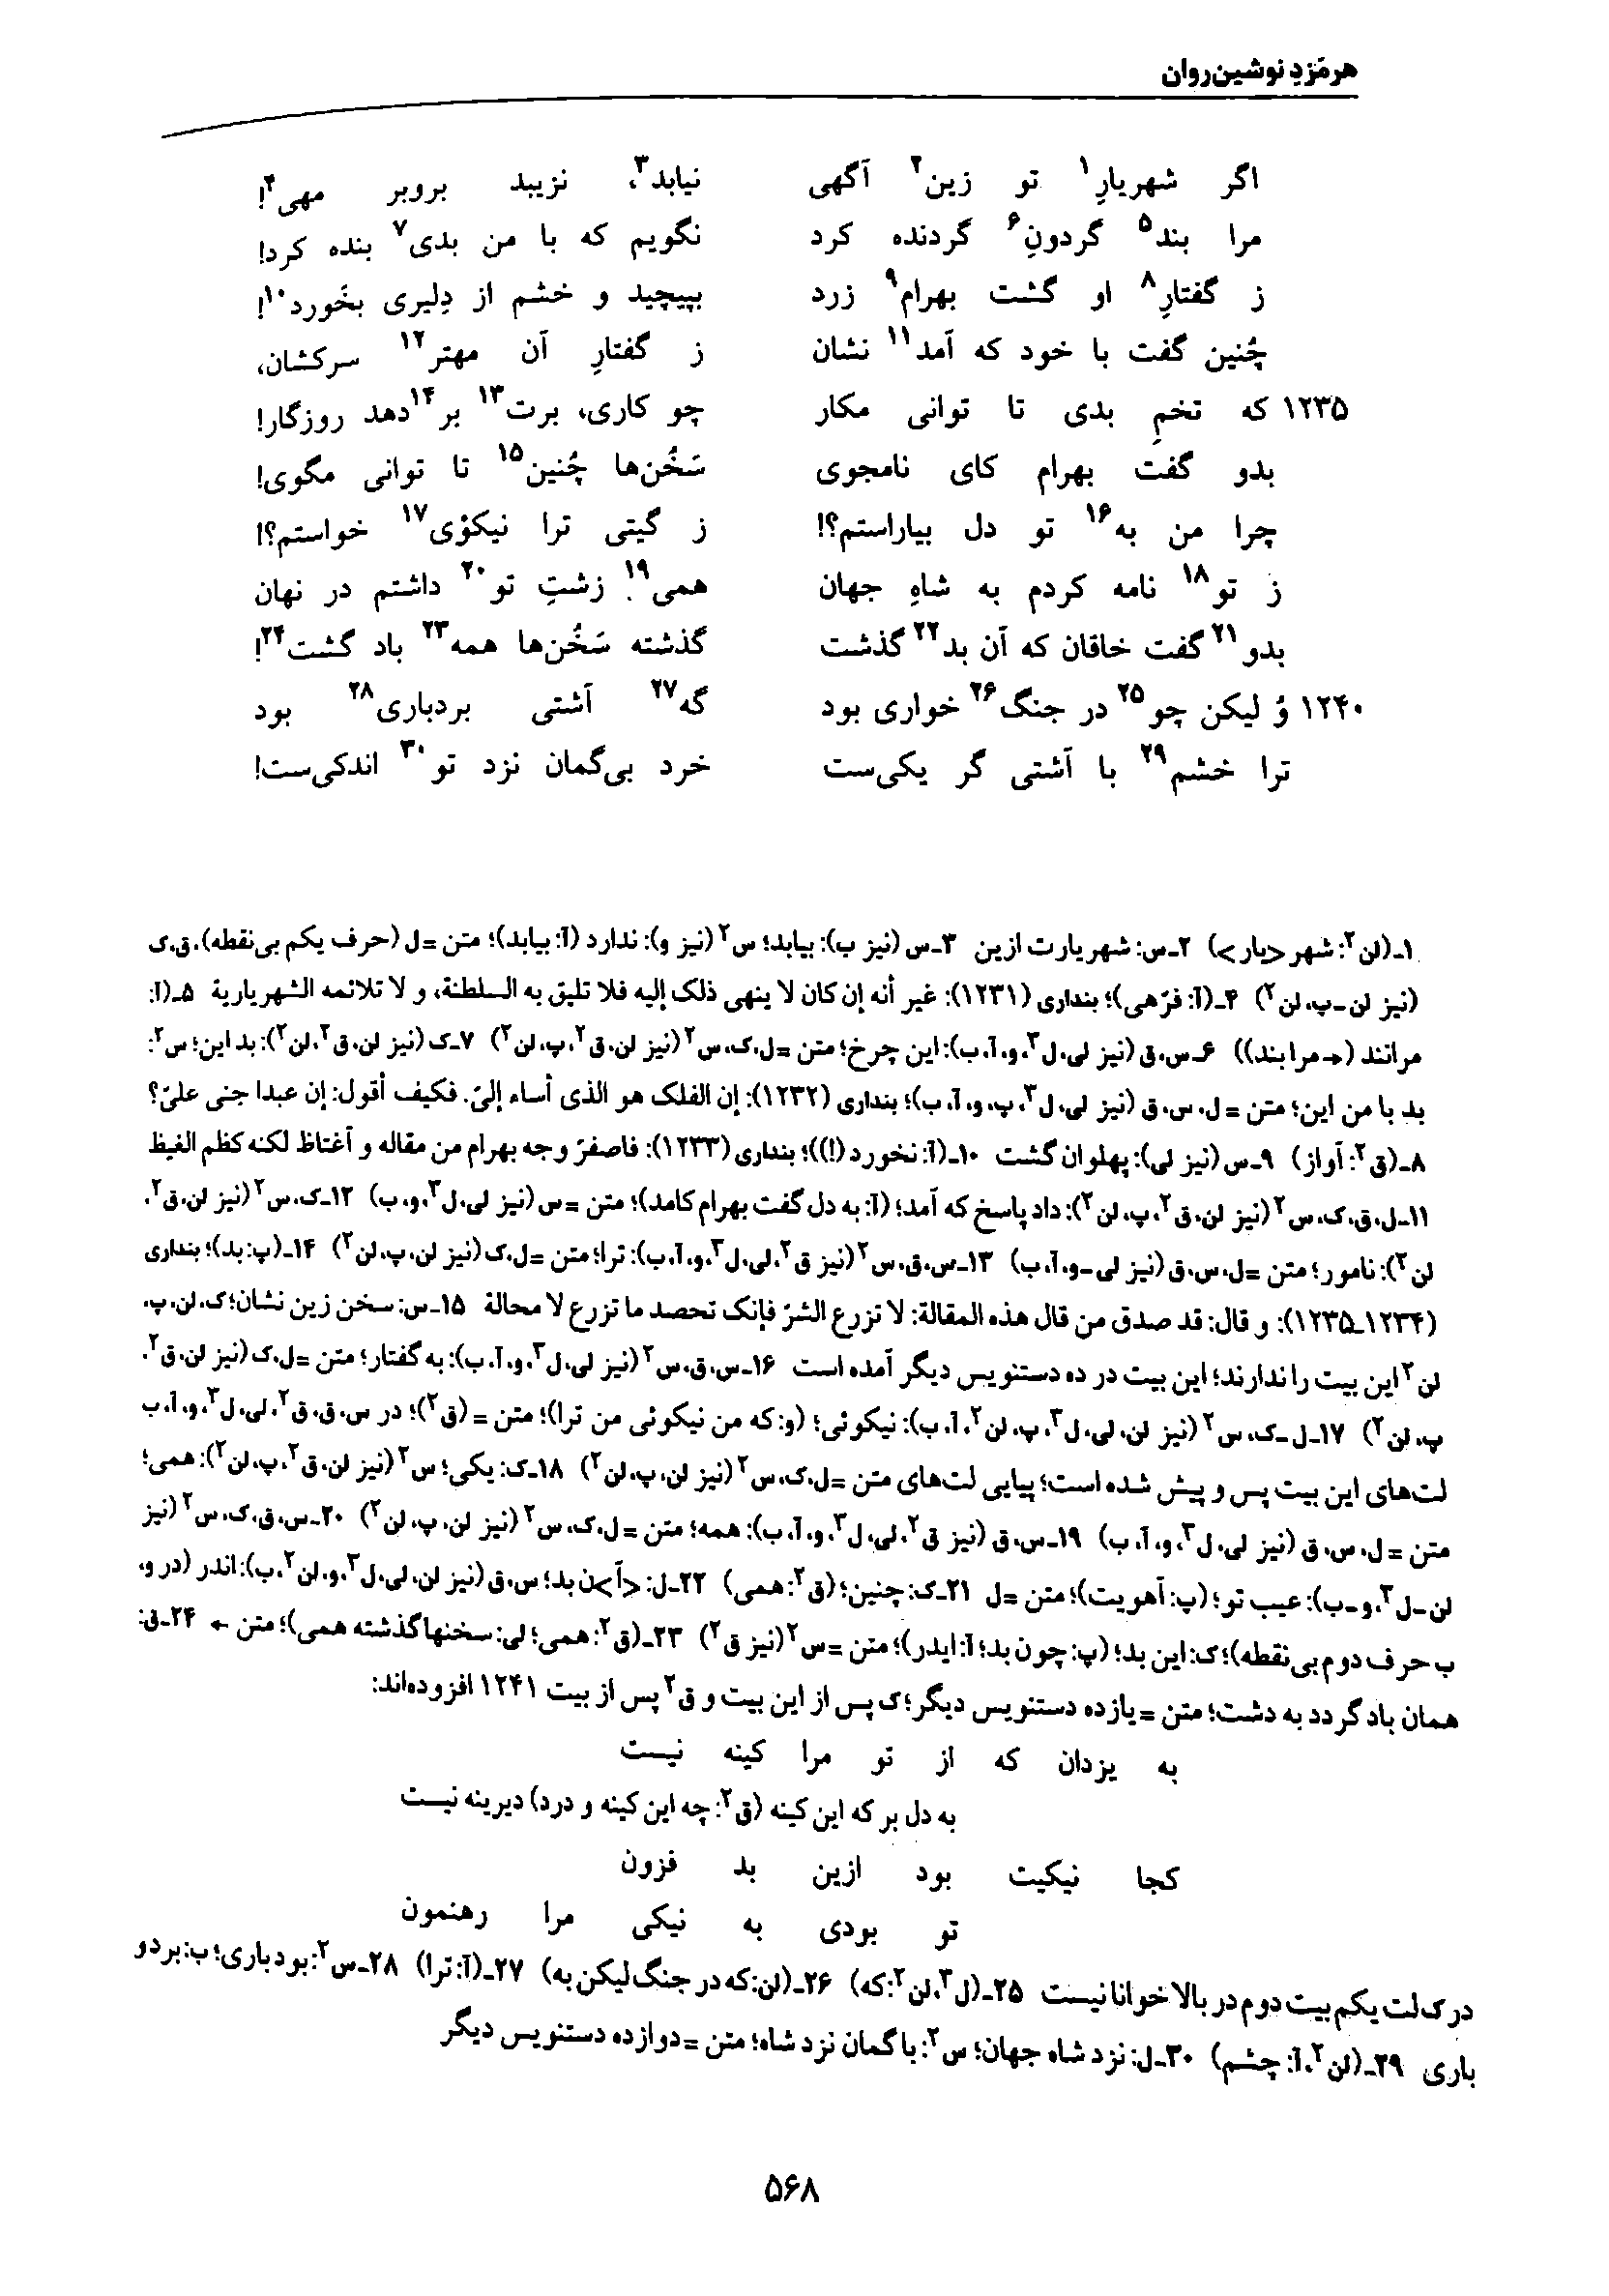 هرمَزدِ نوشین‌روان
اگر شهریارِ۱ تو زین۲ آگهی نیابد۳، نزیبد بروبر مهی۴!
مرا بند۵ گردونِ۶ گردنده کرد نگویم که با من بدی۷ بنده کرد!
ز گفتارِ۸ او گشت بهرام۹ زرد بپیچید و خشم از دِلیری بخَورد۱۰!
چُنین گفت با خود که آمد۱۱ نشان ز گفتارِ آن مهتر۱۲ سرکشان،
۱۲۳۵ که تخمِ بدی تا توانی مکار چو کاری، برت۱۳ بر۱۴دهد روزگار!
بدو گفت بهرام کای نامجوی سَخُن‌ها چُنین۱۵ تا توانی مگوی!
چرا من به۱۶ تو دل بیاراستم؟! ز گیتی ترا نیکؤی۱۷ خواستم؟!
ز تو۱۸ نامه کردم به شاهِ جهان همی۱۹ زشتِ تو۲۰ داشتم در نهان
بدو۲۱ گفت خاقان که آن بد۲۲ گذشت گذشته سَخُن‌ها همه۲۳ باد گشت۲۴!
۱۲۴۰ وُ لیکن چو۲۵ در جنگ۲۶ خواری بود گه۲۷ آشتی بردباری۲۸ بود
ترا خشم۲۹ با آشتی گر یکی‌ست خرد بی‌گمان نزد تو۳۰ اندکی‌ست!
۱ـ(لن۲: شهر<یار>) ۲ـس: شهریارت ازین ۳ـس (نیز ب): بیابد؛ س۲ (نیز و): ندارد (آ: بیابد)؛ متن =ل (حرف یکم بی‌نقطه)، ق، ک
(نیز لن ـ پ، لن۲) ۴ـ(آ: فرّهی)؛ بنداری (۱۲۳۱): غیر أنه إن کان لا ینهی ذلک إلیه فلا تلیق به السلطنة، و لا تلائمه الشهریاریة ۵ـ(آ:
مرانند (← مرا بند)) ۶ـس، ق (نیز لی، ل۳، و، آ، ب): این چرخ؛ متن =ل، ک، س۲ (نیز لن، ق۲، پ، لن۲) ۷ـک (نیز لن، ق۲، لن۲): بد این؛ س۲:
بد با من این؛ متن = ل، س، ق (نیز لی، ل۳، پ، و، آ، ب)؛ بنداری (۱۲۳۲): إن الفلک هو الذی أساء إلیّ. فکیف أقول: إن عبدا جنی علیّ؟
۸ـ(ق۲: آواز) ۹ـس (نیز لی): پهلوان گشت ۱۰ـ(آ: نخورد(!))؛ بنداری (۱۲۳۳): فاصفرّ وجه بهرام من مقاله و أغتاظ لکنه کظم الغیظ
۱۱ـل، ق، ک، س۲ (نیز لن، ق۲، پ، لن۲): داد پاسخ که آمد؛ (آ: به دل گفت بهرام کامد)؛ متن =س (نیز لی، ل۳، و، ب) ۱۲ـک، س۲ (نیز لن، ق۲،
لن۲): نامور؛ متن =ل، س، ق (نیز لی ـ و، آ، ب) ۱۳ـس، ق، س۲ (نیز ق۲، لی، ل۳، و، آ، ب): ترا؛ متن =ل، ک (نیز لن، پ، لن۲) ۱۴ـ(پ: بد)؛ بنداری
(۱۲۳۴ـ۱۲۳۵): و قال: قد صدق من قال هذه المقالة: لا تزرع الشرّ فإنک تحصد ما تزرع لا محالة ۱۵ـس: سخن زین نشان؛ ک، لن، پ،
لن۲ این بیت را ندارند؛ این بیت در ده دستنویس دیگر آمده است ۱۶ـس، ق، س۲ (نیز لی، ل۳، و، آ، ب): به گفتار؛ متن =ل، ک (نیز لن، ق۲،
پ، لن۲) ۱۷ـل ـ ک، س۲ (نیز لن، لی، ل۳، پ، لن۲، آ، ب): نیکوئی؛ (و: که من نیکوئی من ترا)؛ متن = (ق۲)؛ در س، ق، ق۲، لی، ل۳، و، آ، ب
لت‌های این بیت پس و پیش شده است؛ پیاپی لت‌های متن =ل، ک، س۲ (نیز لن، پ، لن۲) ۱۸ـک: یکی؛ س۲ (نیز لن، ق۲، پ، لن۲): همی؛
متن =ل، س، ق (نیز لی، ل۳، و، آ، ب) ۱۹ـس، ق (نیز ق۲، لی، ل۳، و، آ، ب): همه؛ متن =ل، ک، س۲ (نیز لن، پ، لن۲) ۲۰ـس، ق، ک، س۲ (نیز
لن ـ ل۳، و ـ ب): عیب تو؛ (پ: آهویت)؛ متن =ل ۲۱ـک: چنین؛ (ق۲: همی) ۲۲ـل: <آ>ن بد؛ س، ق (نیز لن، لی، ل۳، و، لن۲، ب): اندر (در و،
ب حرف دوم بی‌نقطه)؛ ک: این بد؛ (پ: چون بد؛ آ: ایدر)؛ متن =س۲ (نیز ق۲) ۲۳ـ(ق۲: همی؛ لی: سخنها گذشته همی)؛ متن ← ۲۴ـق:
همان باد گردد به دشت؛ متن = یازده دستنویس دیگر؛ ک پس از این بیت و ق۲ پس از بیت ۱۲۴۱ افزوده‌اند:
به یزدان که از تو مرا کینه نیست
به دل بر که این کینه (ق۲: چه این کینه و درد) دیرینه نیست
کجا نیکیت بود ازین بد فزون
تو بودی به نیکی مرا رهنمون
در ک لت یکم بیت دوم در بالا خوانا نیست ۲۵ـ(ل۳، لن۲: که) ۲۶ـ(لن: که در جنگ لیکن به) ۲۷ـ(آ: ترا) ۲۸ـس۲: بود باری؛ ب: برد و
باری ۲۹ـ(لن۲، آ: چشم) ۳۰ـل: نزد شاه جهان؛ س۲: با گمان نزد شاه؛ متن =دوازده دستنویس دیگر
۵۶۸